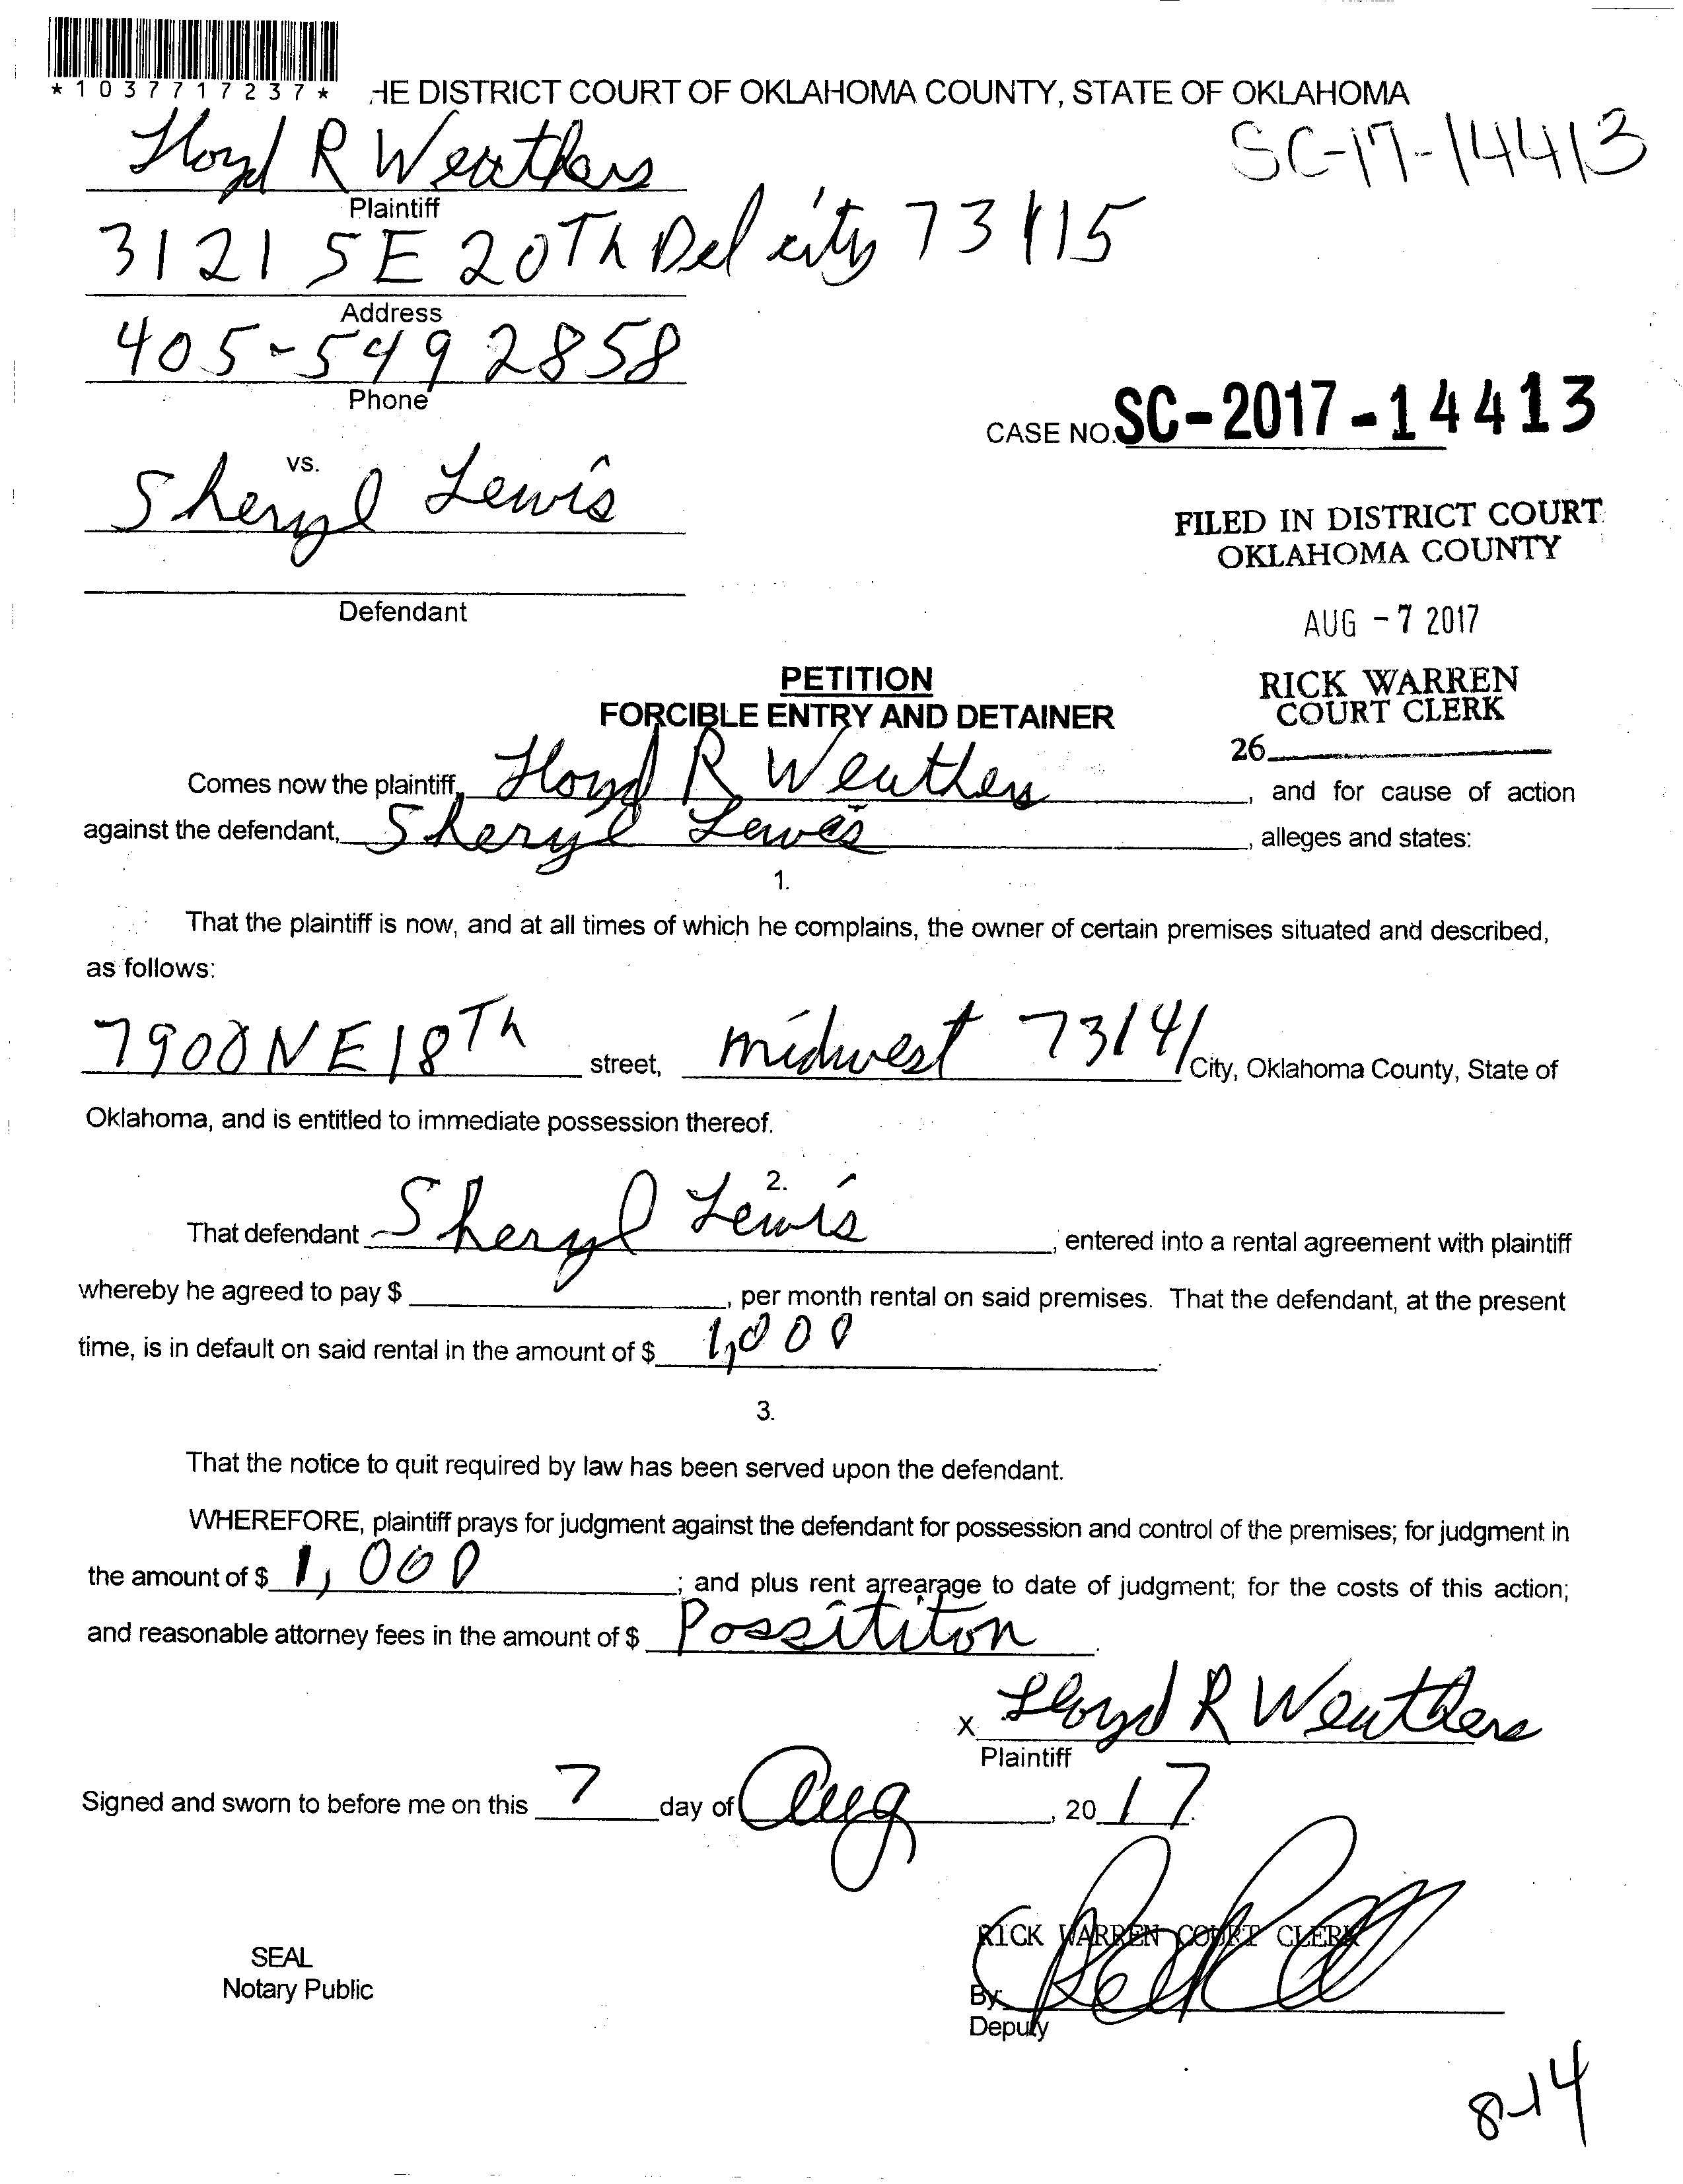 *1037717237*
HE DISTRICT COURT OF OKLAHOMA COUNTY, STATE OF OKLAHOMA
Lloyd R Weathers
SC-17-14413
Plaintiff
3121 SE 20Th Del city 73115
Address
405-549 2858
Phone
CASE NO. SC-2017-14413
vs.
Sheryl Lewis
FILED IN DISTRICT COURT
OKLAHOMA COUNTY
Defendant
AUG -7 2017
PETITION
FORCIBLE ENTRY AND DETAINER
RICK WARREN
COURT CLERK
26
Comes now the plaintiff, Lloyd R Weathers, and for cause of action
against the defendant, Sheryl Lewis, alleges and states:
1.
That the plaintiff is now, and at all times of which he complains, the owner of certain premises situated and described,
as follows:
7900 NE 18Th street, midwest 73141 City, Oklahoma County, State of
Oklahoma, and is entitled to immediate possession thereof.
2.
That defendant Sheryl Lewis, entered into a rental agreement with plaintiff
whereby he agreed to pay $ , per month rental on said premises. That the defendant, at the present
time, is in default on said rental in the amount of $ 1,000.
3.
That the notice to quit required by law has been served upon the defendant.
WHEREFORE, plaintiff prays for judgment against the defendant for possession and control of the premises; for judgment in
the amount of $ 1,000; and plus rent arrearage to date of judgment; for the costs of this action;
and reasonable attorney fees in the amount of $ Possititon.
x Lloyd R Weathers
Plaintiff
Signed and sworn to before me on this 7 day of Aug, 20 17.
RICK WARREN COURT CLERK
SEAL
Notary Public
By:
Deputy
8-14